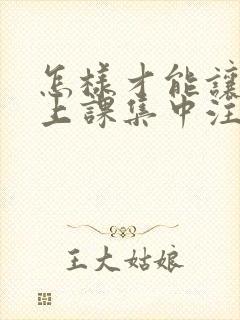 怎樣才能讓
上課集中注
王大姑娘